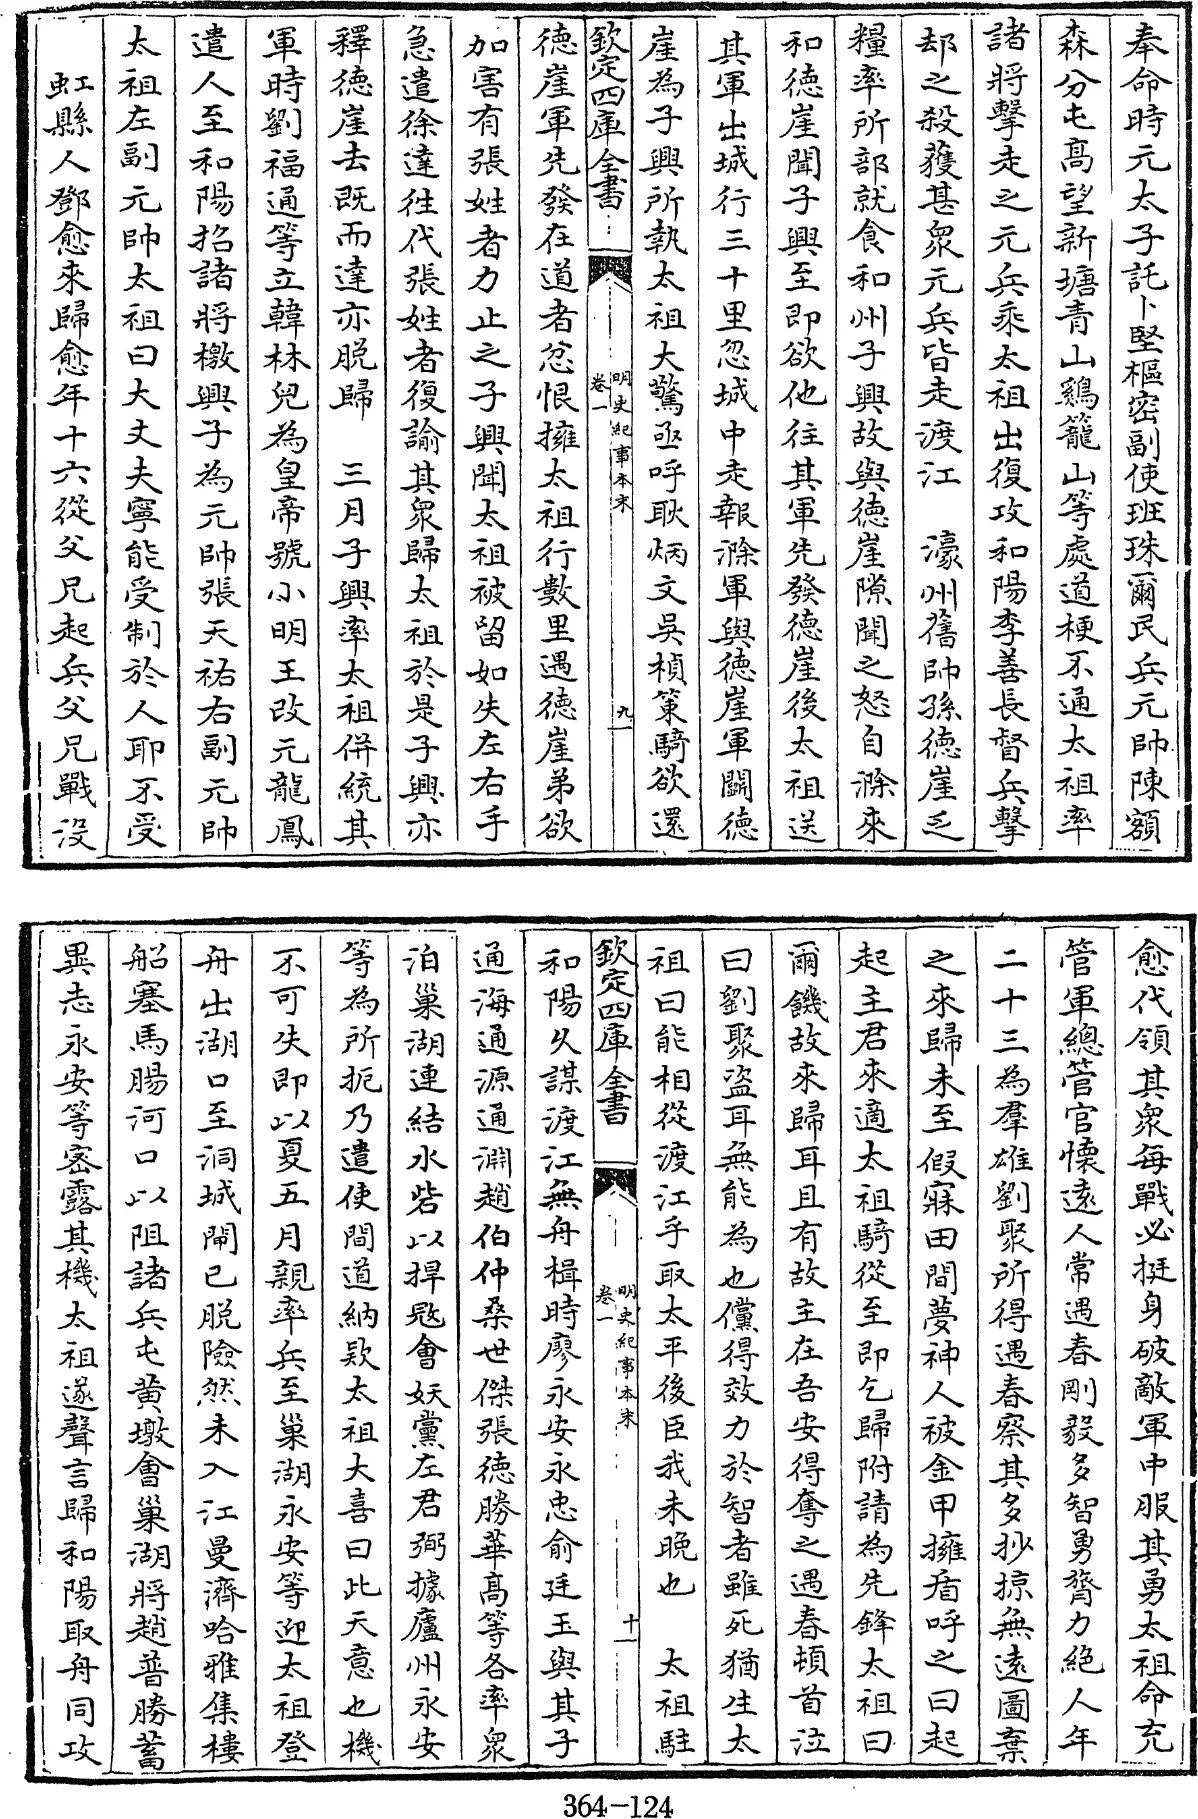 奉命時元太子託卜堅樞密副使班珠爾民兵元帥陳額
森分屯髙望新塘青山鷄籠山等處道梗不通太祖率
諸將擊走之元兵乘太祖出復攻和陽李善長督兵擊
却之殺獲甚衆元兵皆走渡江　濠州舊帥孫德崖乏
糧率所部就食和州子興故與德崖隙聞之怒自滁來
和德崖聞子興至即欲他往其軍先發德崖後太祖送
其軍出城行三十里忽城中走報滁軍與德崖軍鬬德
崖為子興所執太祖大驚亟呼耿炳文吳楨策騎欲還
欽定四庫全書
明史紀事本末
卷一
九
德崖軍先發在道者忿恨擁太祖行數里遇德崖弟欲
加害有張姓者力止之子興聞太祖被留如失左右手
急遣徐達往代張姓者復諭其衆歸太祖於是子興亦
釋德崖去既而達亦脱歸　三月子興率太祖併統其
軍時劉福通等立韓林兒為皇帝號小明王改元龍鳳
遣人至和陽招諸將檄興子為元帥張天祐右副元帥
太祖左副元帥太祖曰大丈夫寧能受制於人耶不受
虹縣人鄧愈來歸愈年十六從父兄起兵父兄戰沒
愈代領其衆每戰必挺身破敵軍中服其勇太祖命充
管軍總管官懷遠人常遇春剛毅多智勇膂力絕人年
二十三為羣雄劉聚所得遇春察其多抄掠無遠圖棄
之來歸未至假寐田間夢神人被金甲擁盾呼之曰起
起主君來適太祖騎從至即乞歸附請為先鋒太祖曰
爾饑故來歸耳且有故主在吾安得奪之遇春頓首泣
曰劉聚盜耳無能為也儻得效力於智者雖死猶生太
祖曰能相從渡江乎取太平後臣我未晚也　太祖駐
欽定四庫全書
明史紀事本末
卷一
十
和陽久謀渡江無舟楫時廖永安永忠俞廷玉與其子
通海通源通淵趙伯仲桑世傑張德勝華高等各率衆
泊巢湖連結水砦以捍冦會妖黨左君弼據廬州永安
等為所扼乃遣使間道納欵太祖大喜曰此天意也機
不可失即以夏五月親率兵至巢湖永安等迎太祖登
舟出湖口至洞城閘已脱險然未入江曼濟哈雅集樓
船塞馬腸河口以阻諸兵屯黄墩會巢湖將趙普勝蓄
異志永安等密露其機太祖遂聲言歸和陽取舟同攻
364-124